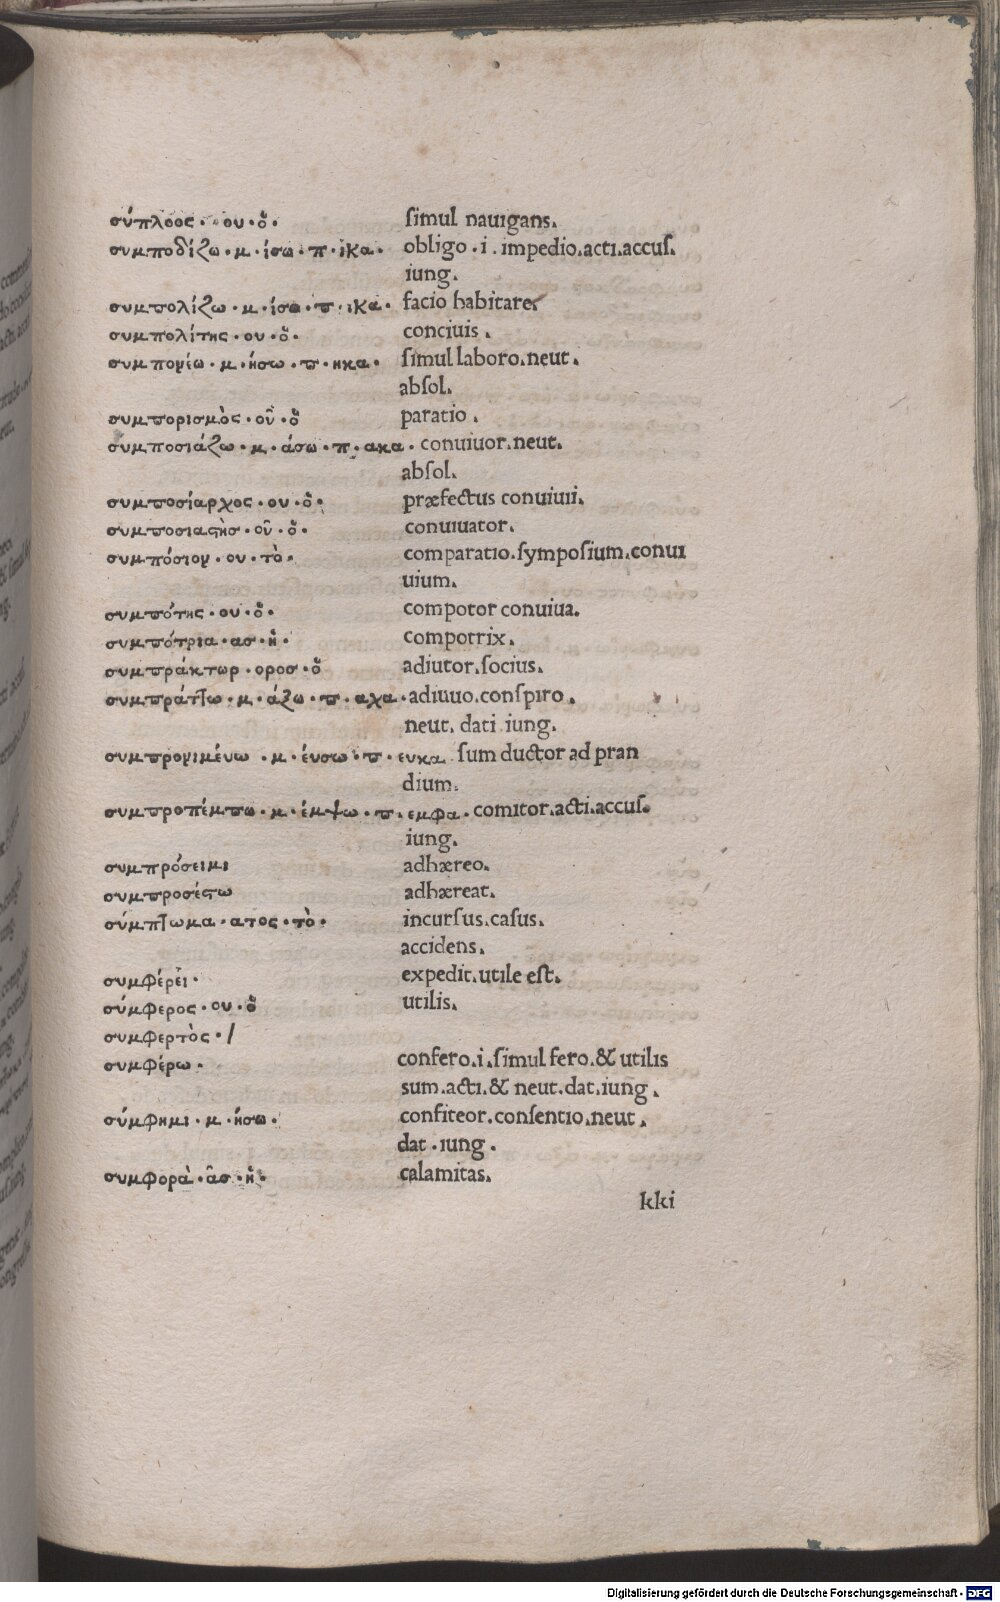 σύπλοος· ου·ὅ· simul nauigans.
συμποδίζω·μ·ίσω·π·ικα· obligo.i.impedio.acti.accus.
iung.
συμπολίζω·μ·ίσω·π·ικα· facio habitare.
συμπολίτης·ου·ὅ· conciuis.
συμπονέω·μ·ήσω·π·ηκα· simul laboro.neut.
absol.
συμπορισμὸς·οῦ·ὅ paratio.
συμποσιάζω·μ·άσω·π·ακα· conuiuor.neut.
absol.
συμποσίαρχος·ου·ὅ· præfectus conuiuii.
συμποσιαστὴσ·οῦ·ὅ· conuiuator.
συμπόσιον·ου·τὸ· comparatio.symposium.conui
uium.
συμπότης·ου·ὅ· compotor conuiua.
συμπότρια·ασ·ἥ· compotrix.
συμπράκτωρ·οροσ·ὅ adiutor.socius.
συμπράττω·μ·άξω·π·αχα· adiuuo.conspiro.
neut. dati iung.
συμπρογιμένω·μ·ένσω·π·ευκα sum ductor ad pran
dium.
συμπροπέμπω·μ·έμψω·π·εμφα· comitor.acti.accus.
iung.
συμπρόσειμι adhæreo.
συμπροσέστω adhæreat.
σύμπτωμα·ατος·τὸ· incursus.casus.
accidens.
συμφέρει· expedit.utile est.
σύμφερος·ου·ὅ utilis.
συμφερτὸς·/
συμφέρω· confero.i.simul fero.& utilis
sum.acti.& neut.dat.iung.
σύμφημι·μ·ήσω· confiteor.consentio.neut.
dat.iung.
συμφορὰ·ᾶσ·ἥ· calamitas.
kki
Digitalisierung gefördert durch die Deutsche Forschungsgemeinschaft - DFG